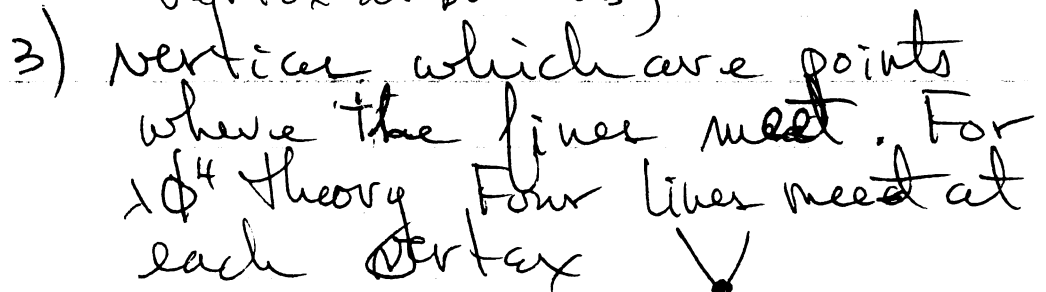 3) vertices which are points
where the lines meet. For
λϕ⁴ theory Four lines meet at
each vertex